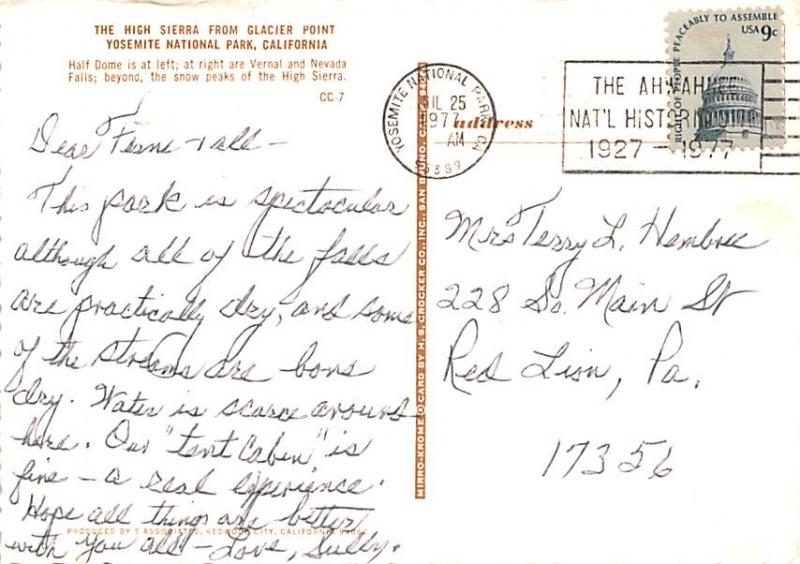 THE HIGH SIERRA FROM GLACIER POINT
YOSEMITE NATIONAL PARK, CALIFORNIA
Half Dome is at left; at right are Vernal and Nevada
Falls; beyond, the snow peaks of the High Sierra.
CC-7
Dear Ferne & all -
This park is spectacular
although all of the falls
are practically dry, and some
of the streams are bone
dry. Water is scarce around
here. Our "tent Cabin" is
fine - a real experience.
Hope all things are better
with you all - Love, Sully.
PRODUCED BY 5 ASSOCIATES, REDWOOD CITY, CALIFORNIA
MIRRO-KROME ® CARD BY H. S. CROCKER CO., INC., SAN BRUNO, CALIF.
YOSEMITE NATIONAL PARK, CA
JUL 25
1977
AM
95389
address
THE AHWAHNEE
NAT'L HISTORIC
1927 - 1977
RIGHT OF PEOPLE PEACEABLY TO ASSEMBLE
USA 9c
Mrs Terry L. Hembree
228 So. Main St
Red Lion, Pa.
17356